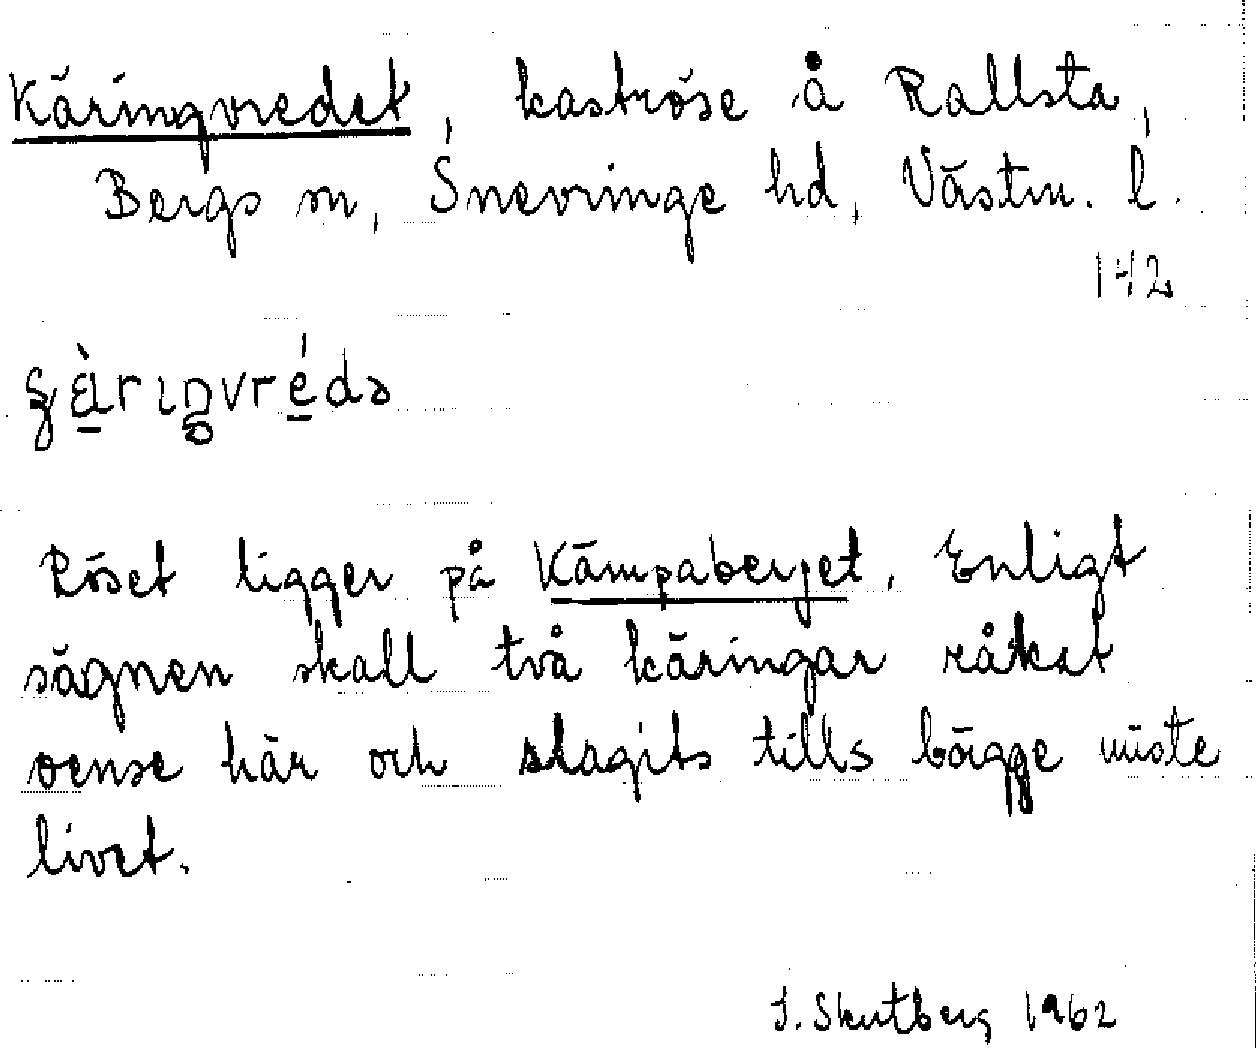 Käringvredet, kaströse å Rallsta,
Bergs sn, Snevringe hd, Västm. l.
142
Röset ligger på Kämpaberget. Enligt
sägnen skall två käringar råkat
oense här och slagits tills bägge miste
livet.
J. Skutberg 1962